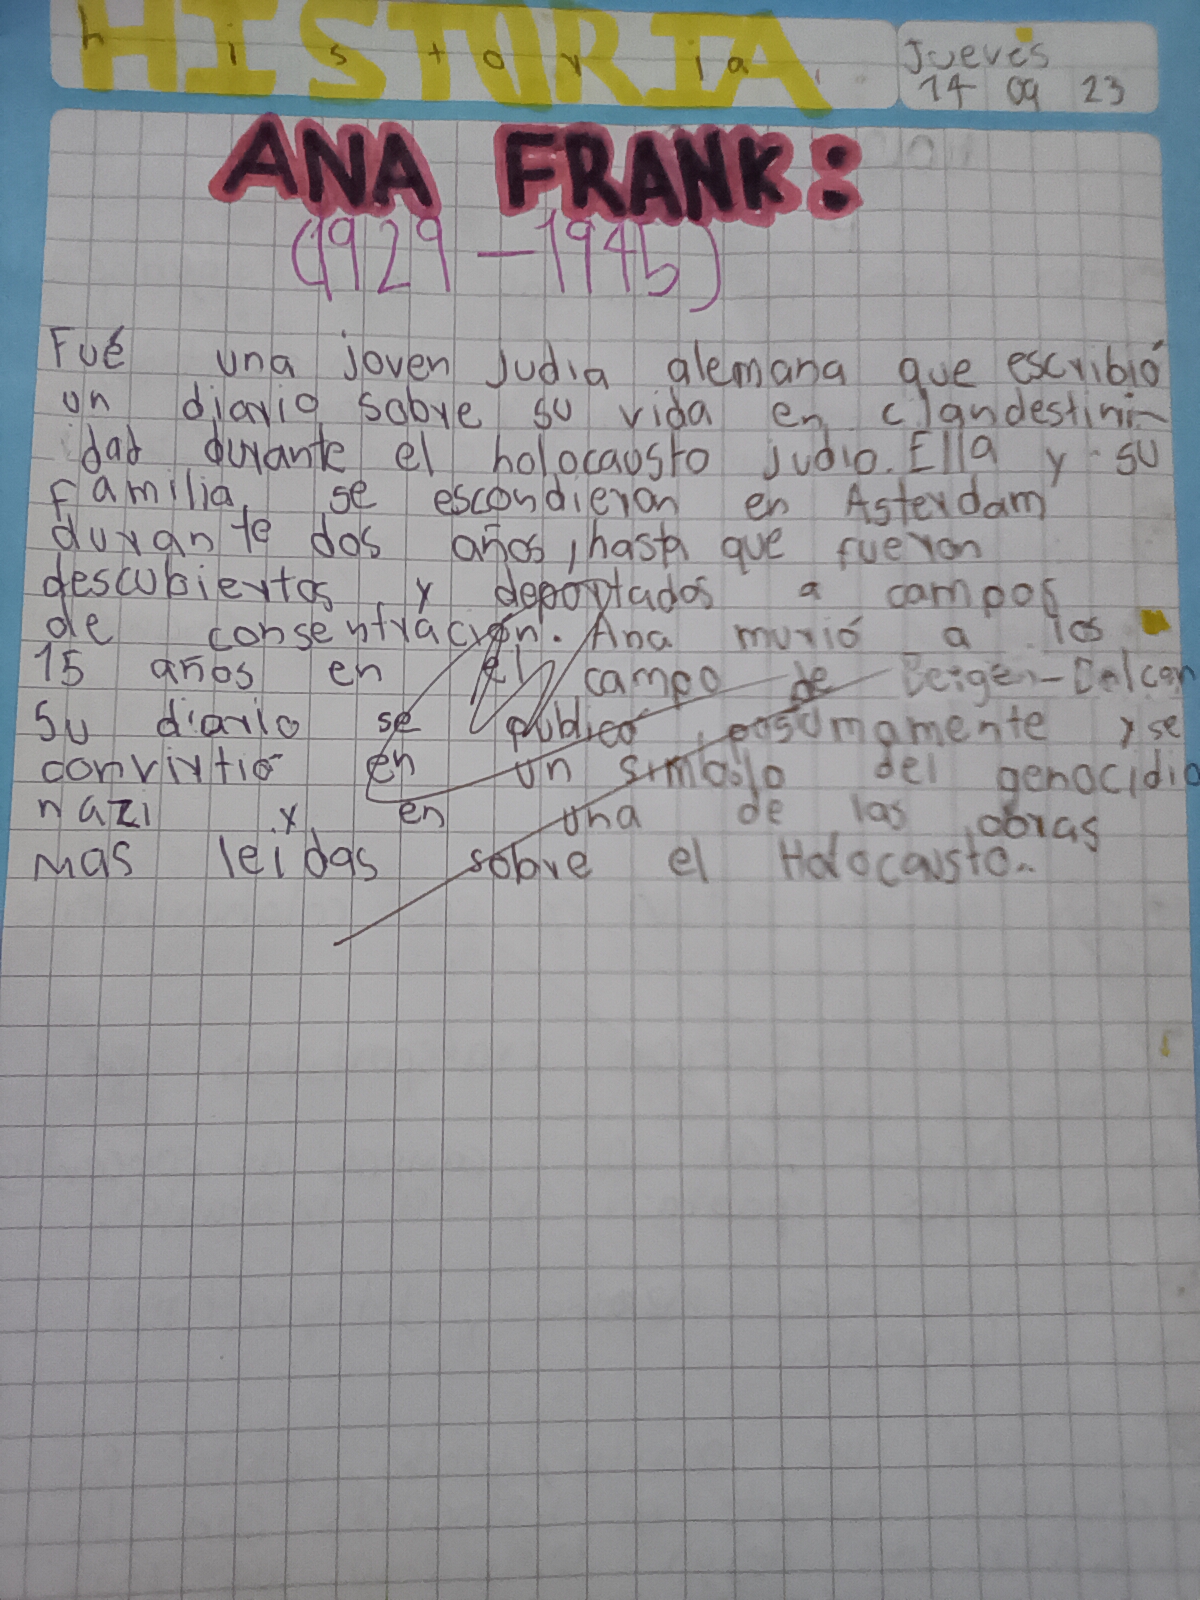 HISTORIA
historia
Jueves
14 09 23
ANA FRANK:
(1929-1945)
Fué una joven judia alemana que escribió
un diario sobre su vida en clandestini-
dad durante el holocausto judio. Ella y su
familia se escondieron en Asterdam
durante dos años, hasta que fueron
descubiertos y deportados a campos
de consentración. Ana murió a los
15 años en el campo de Beigen-Belcen
Su diario se publico posumamente y se
convirtió en un simbolo del genocidio
nazi y en una de las obras
mas leidas sobre el Holocausto..